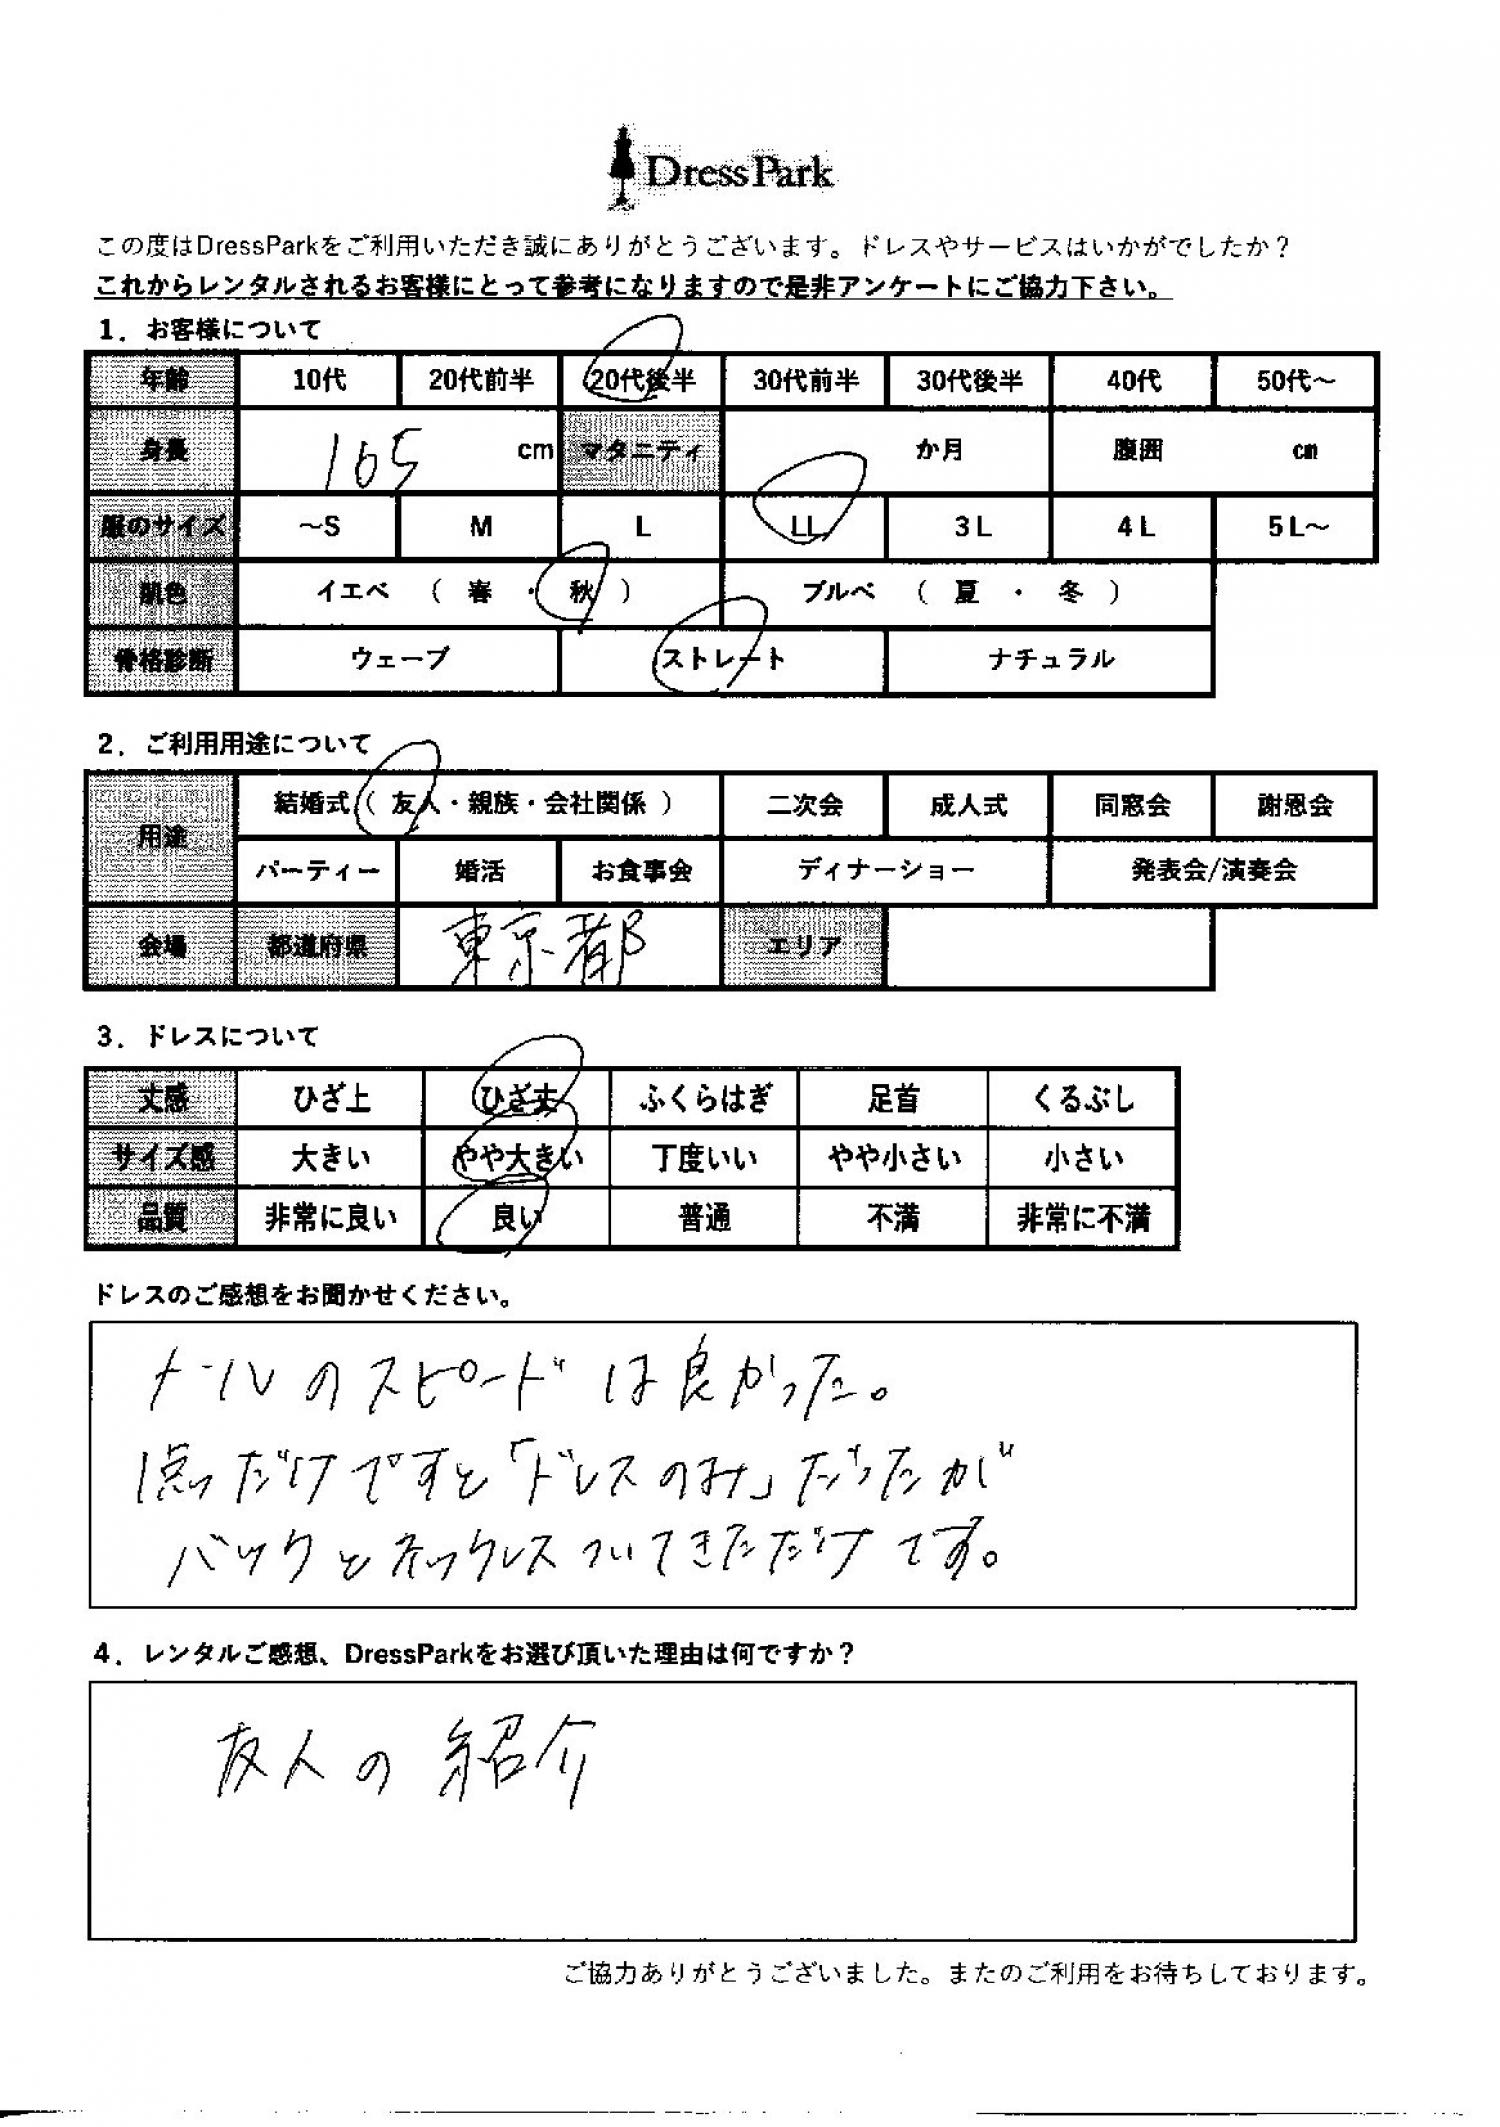 DressPark
この度はDressParkをご利用いただき誠にありがとうございます。ドレスやサービスはいかがでしたか？
これからレンタルされるお客様にとって参考になりますので是非アンケートにご協力下さい。
1．お客様について
年齢 10代 20代前半 20代後半 30代前半 30代後半 40代 50代～
身長 165 cm マタニティ か月 腹囲 cm
服のサイズ ～S M L LL 3L 4L 5L～
肌色 イエベ （ 春 ・ 秋 ） ブルベ （ 夏 ・ 冬 ）
骨格診断 ウェーブ ストレート ナチュラル
2．ご利用用途について
用途 結婚式（ 友人・親族・会社関係 ） 二次会 成人式 同窓会 謝恩会
パーティー 婚活 お食事会 ディナーショー 発表会/演奏会
会場 都道府県 東京都 エリア
3．ドレスについて
丈感 ひざ上 ひざ丈 ふくらはぎ 足首 くるぶし
サイズ感 大きい やや大きい 丁度いい やや小さい 小さい
品質 非常に良い 良い 普通 不満 非常に不満
ドレスのご感想をお聞かせください。
メールのスピードは良かった。
1点だけですと「ドレスのみ」だったが
バックとネックレスついてきただけです。
4．レンタルご感想、DressParkをお選び頂いた理由は何ですか？
友人の紹介
ご協力ありがとうございました。またのご利用をお待ちしております。